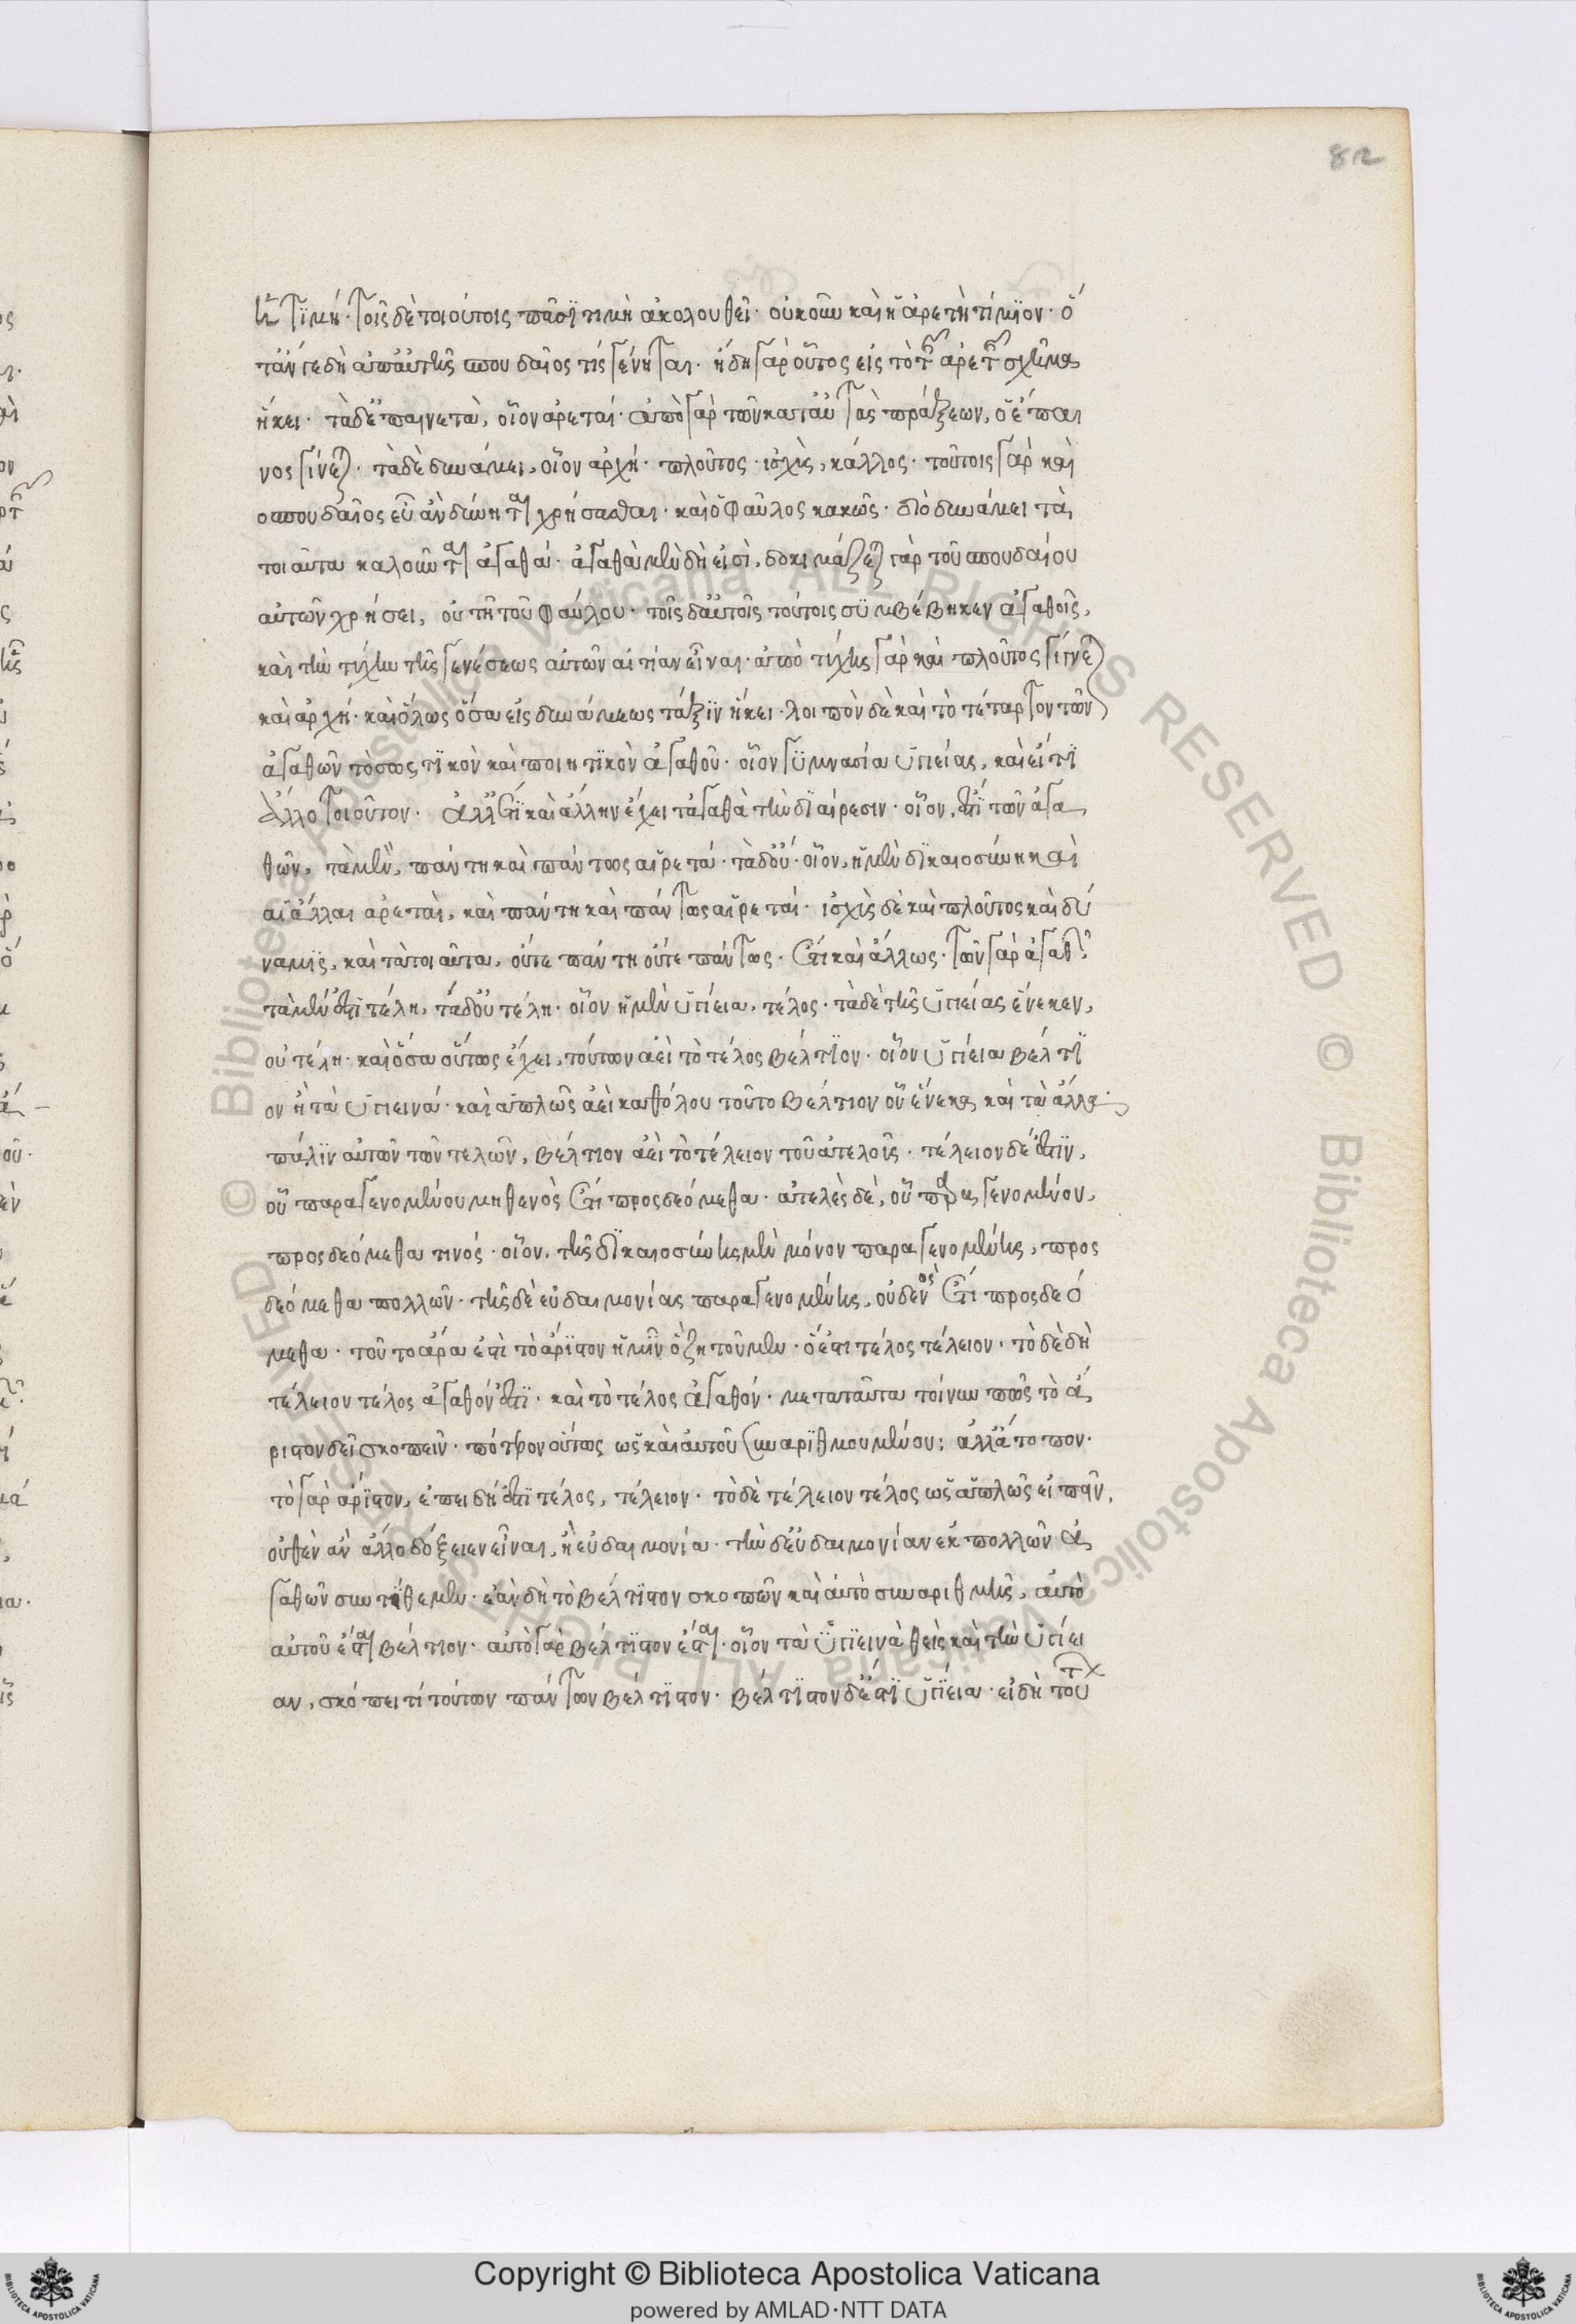 82
ἡ τιμή· τοῖς δὲ τοιούτοις πᾶσι τιμὴ ἀκολουθεῖ· οὐκοῦν καὶ ἡ ἀρετὴ τίμιον· ὅ
τάν γε δὴ ἀπ' αὐτῆς σπουδαῖος τίς γένηται· ἤδη γὰρ οὗτος εἰς τὸ τῆς ἀρετῆς σχῆμα
ἥκει· τὰ δ' ἐπαινετὰ, οἷον ἀρεταί· ἀπὸ γὰρ τῶν κατ' αὐτὰς πράξεων, ὁ ἔπαι
νος γίνεται· τὰ δὲ δυνάμει, οἷον ἀρχή· πλοῦτος· ἰσχὺς, κάλλος· τούτοις γὰρ καὶ
ὁ σπουδαῖος εὖ ἂν δύνηται χρήσασθαι· καὶ ὁ φαῦλος κακῶς· διὸ δυνάμει τὰ
τοιαῦτα καλοῦνται ἀγαθά· ἀγαθὰ μὲν δή εἰσι, δοκιμάζεται γὰρ τοῦ σπουδαίου
αὐτῶν χρήσει, οὐ τῇ τοῦ φαύλου· τοῖς δ' αὐτοῖς τούτοις συμβέβηκεν ἀγαθοῖς,
καὶ τὴν τύχην τῆς γενέσεως αὐτῶν αἰτίαν εἶναι· ἀπὸ τύχης γὰρ καὶ πλοῦτος γίγνεται
καὶ ἀρχή· καὶ ὅλως ὅσα εἰς δυνάμεως τάξιν ἥκει· λοιπὸν δὲ καὶ τὸ τέταρτον τῶν
ἀγαθῶν τὸ σωστικὸν καὶ ποιητικὸν ἀγαθοῦ· οἷον γυμνασία ὑγιείας, καὶ εἴ τι
ἄλλο τοιοῦτον· ἀλλ' ἔτι καὶ ἄλλην ἔχει τἀγαθὰ τὴν διαίρεσιν· οἷον, ἐστὶ τῶν ἀγα
θῶν, τὰ μὲν, πάντη καὶ πάντως αἱρετά· τὰ δ' οὔ· οἷον, ἡ μὲν δικαιοσύνη καὶ
αἱ ἄλλαι ἀρεταὶ, καὶ πάντη καὶ πάντως αἱρεταί· ἰσχὺς δὲ καὶ πλοῦτος καὶ δύ
ναμις, καὶ τὰ τοιαῦτα, οὔτε πάντη οὔτε πάντως· ἔτι καὶ ἄλλως· τῶν γὰρ ἀγαθῶν
τὰ μέν ἐστι τέλη, τὰ δ' οὐ τέλη· οἷον ἡ μὲν ὑγίεια, τέλος· τὰ δὲ τῆς ὑγιείας ἕνεκεν,
οὐ τέλη· καὶ ὅσα οὕτως ἔχει, τούτων ἀεὶ τὸ τέλος βέλτιον· οἷον ὑγίεια βέλτι
ον ἢ τὰ ὑγιεινά· καὶ ἁπλῶς ἀεὶ καθόλου τοῦτο βέλτιον οὗ ἕνεκα καὶ τὰ ἄλλα·
πάλιν αὐτῶν τῶν τελῶν, βέλτιον ἀεὶ τὸ τέλειον τοῦ ἀτελοῦς· τέλειον δέ ἐστιν,
οὗ παραγενομένου μηθενὸς ἔτι προσδεόμεθα· ἀτελὲς δὲ, οὗ παραγενομένου,
προσδεόμεθα τινός· οἷον, τῆς δικαιοσύνης μὲν μόνον παραγενομένης, προσ
δεόμεθα πολλῶν· τῆς δὲ εὐδαιμονίας παραγενομένης, οὐδενὸς ἔτι προσδεό
μεθα· τοῦτο ἄρα ἐστὶ τὸ ἄριστον ἡμῖν ὃ ζητοῦμεν· ὅ ἐστι τέλος τέλειον· τὸ δὲ δὴ
τέλειον τέλος ἀγαθόν ἐστι· καὶ τὸ τέλος ἀγαθόν· μετὰ ταῦτα τοίνυν πῶς τὸ ἄ
ριστον δεῖ σκοπεῖν· πότερον οὕτως ὡς καὶ αὐτοῦ συναριθμουμένου; ἀλλ' ἄτοπον·
τὸ γὰρ ἄριστον, ἐπειδή ἐστι τέλος, τέλειον· τὸ δὲ τέλειον τέλος ὡς ἁπλῶς εἰπεῖν,
οὐθὲν ἂν ἄλλο δόξειεν εἶναι, ἢ εὐδαιμονία· τὴν δ' εὐδαιμονίαν ἐκ πολλῶν ἀ
γαθῶν συντίθεμεν· ἐὰν δὴ τὸ βέλτιστον σκοπῶν καὶ αὐτὸ συναριθμῇς, αὐτὸ
αὑτοῦ ἔσται βέλτιον· αὐτὸ γὰρ βέλτιστον ἔσται· οἷον τὰ ὑγιεινὰ θεὶς καὶ τὴν ὑγίει
αν, σκόπει τί τούτων πάντων βέλτιστον· βέλτιστον δέ ἐστι ὑγίεια· εἰ δὴ τοῦ
Copyright © Biblioteca Apostolica Vaticana
powered by AMLAD·NTT DATA